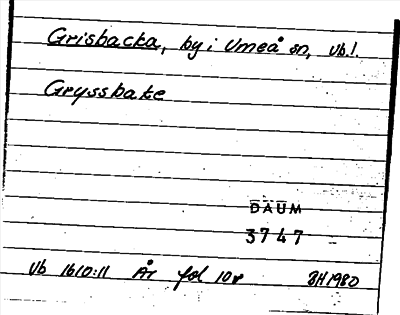 Grisbacka, by i Umeå sn, Vb.!
Gryssbake
DAUM
3747
Vb 1610:11 År fol 10v BH 1980